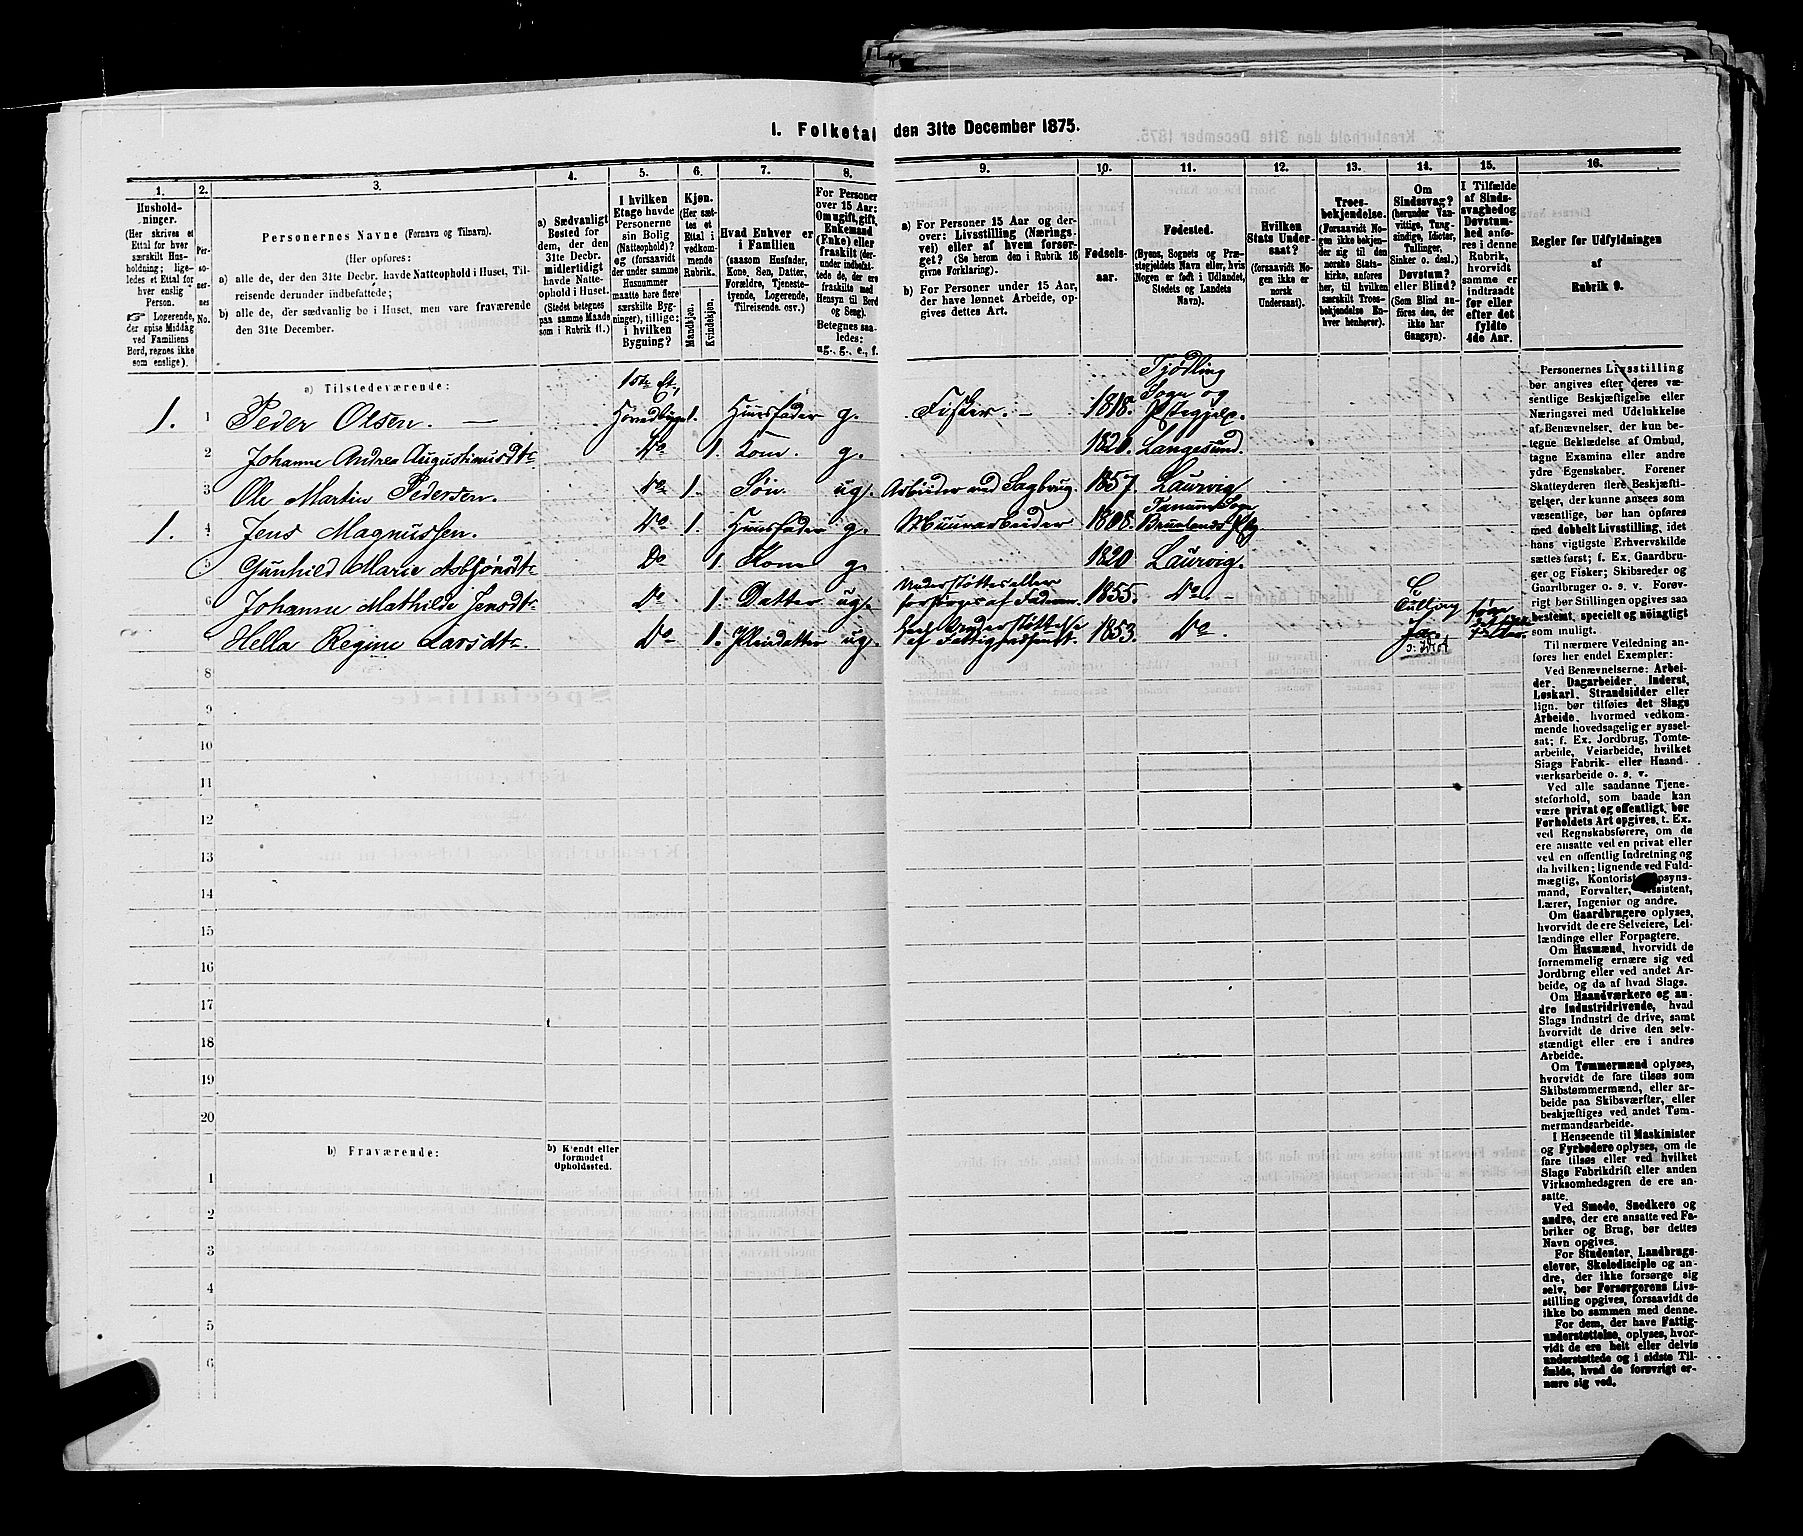 I. Folketal den 31te December 1875.
1.
2.
3.
4.
5.
6.
7.
8.
9.
10.
11.
12.
13.
14.
15.
16.
Husholdninger.
(Her skrives et
Ettal for hver
særskilt Husholdning;
ligeledes et Ettal for
hver enslig
Person.
☞ Logerende,
der spise Middag
ved Familiens
Bord, regnes ikke
som enslige).
Personernes
No.
Personernes Navne (Fornavn og Tilnavn).
(Her opføres:
a) alle de, der den 31te Decbr. havde Natteophold i Huset, Tilreisende
derunder indbefattede;
b) alle de, der sædvanlig bo i Huset, men vare fraværende
den 31te December.
a) Sædvanligt
Bosted for
dem, der den
31te Decbr.
midlertidigt
havde Natteophold
i Huset.
(Stedet betegnes
paa samme Maade
som i Rubrik 11.)
I hvilken
Etage havde
Personerne
sin Bolig
(Natteophold)?
og (forsaavidt
der under samme
Husnummer
maatte høre flere
særskilte Bygninger),
tillige:
i hvilken
Bygning?
Kjøn.
(Her sættes
et
Ettal i
vedkommende
Rubrik.
Mandkjøn.
Kvindekjøn.
Hvad Enhver er
i Familien
(saasom Husfader,
Kone, Søn, Datter,
Forældre, Tjenestetyende,
Logerende,
Tilreisende osv.)
For Personer
over 15 Aar:
Om ugift, gift,
Enkemand
(Enke) eller
fraskilt (derunder
indbefattede
de, der ere
fraskilte med
Hensyn til Bord
og Seng).
Betegnes saaledes:
ug., g., e., f.
a) For Personer 15 Aar og derover:
Livsstilling (Næringsvei)
eller af hvem forsørget?
(Se herom den i Rubrik 16
givne Forklaring).
b) For Personer under 15 Aar,
der have lønnet Arbeide, opgives
dettes Art.
Fødselsaar.
Fødested.
(Byens, Sognets og Præstegjeldets
Navn, eller, hvis
Nogen er født i Udlandet,
Stedets og Landets
Navn).
Hvilken
Stats Undersaat?
(forsaavidt Nogen
ikke er
norsk
Undersaat).
Troesbekjendelse.
(Forsaavidt Nogen
ikke bekjender
sig til den
norske Statskirke,
anføres
her, til hvilken
særskilt Troesbekjendelse
Enhver
henhører).
Om
Sindssvag?
(herunder Vanvittige,
Tungsindige,
Idioter,
Tullinger,
Sinker o. desl.)
Døvstum?
eller Blind?
(Som Blind anføres
den, der
ikke har
Gangsyn).
I Tilfælde
af Sindssvaghed
og
Døvstumhed
anføres
i denne
Rubrik,
hvorvidt
samme er
indtraadt
før eller
efter det
fyldte
4de Aar.
Regler for Udfyldningen
af
Rubrik 9.
a) Tilstedeværende:
1. 1 Peder Olsen. 1ste Et., Hovedbygn. 1. Huusfader g. Fisker. 1818. Tjödling Sogn og Præstegjeld.
2 Johanne Andrea Augustinusdtr Do 1. Kone. g. 1820. Langesund.
3 Ole Martin Pedersen. Do 1. Søn. ug. Arbeider ved Sagbrug. 1857. Laurvig
1. 4 Jens Magnussen. Do 1. Huusfader g. Muurarbeider 1808. Tanum Sogn Brunlands Pg
5 Gunhild Marie Asbjöndtr Do 1. Kone g. 1820 Laurvig.
6 Johanne Mathilde Jensdtr Do 1. Datter ug. Understøttes eller forsørges af Faderen. 1855. Do Tulling
7 Hella Regine Larsdtr. Do 1. Pleiedatter ug. Understøttelse af Fattigvæsenet. 1853. Do Ja. ɔ: Idiot
8
9
10
11
12
13
14
15
16
17
18
19
20
b) Fraværende:
b) Kjendt eller
formodet
Opholdssted.
1
2
3
4
5
6
Personernes Livsstilling
bør angives efter deres væsentlige
Beskjæftigelse eller
Næringsvei med Udelukkelse
af Benævnelser, der kun betegne
Beklædelse af Ombud,
tagne Examina eller andre
ydre Egenskaber. Forener
Skatteyderen flere Beskjæftigelser,
der kunne ansees som
væsentlige, bør han opføres
med dobbelt Livsstilling, idet
hans vigtigste Erhvervskilde
sættes først; f. Ex. Gaardbruger
og Fisker; Skibsreder og
Gaardbruger o. s. v. Forøvrigt
bør Stillingen opgives saa
bestemt, specielt og nøiagtigt
som muligt.
Til nærmere Veiledning anføres
her endel Exempler:
Ved Benævnelserne: Arbeider,
Dagarbeider, Inderst,
Løskarl, Strandsidder eller
lign. bør tilføies det Slags
Arbeide, hvormed vedkommende
hovedsagelig er sysselsat;
f. Ex. Jordbrug, Tomtearbeide,
Veiarbeide, hvilket
Slags Fabrik- eller Haandværksarbeide
o. s. v.
Ved alle saadanne Tjenesteforhold,
som baade kan
være privat og offentligt, bør
Forholdets Art opgives, t. Ex.
ved Regnskabsførere, om de
ere ansatte ved en privat eller
ved en offentlig Indretning og
da hvilken; lignende ved Fuldmægtig,
Kontorist, Opsynsmand,
Forvalter, Assistent,
Lærer, Ingeniør og andre.
Om Gaardbrugere oplyses,
hvorvidt de ere Selveiere, Leilændinge
eller Forpagtere.
Om Husmænd, hvorvidt de
fornemmelig ernære sig ved
Jordbrug eller ved andet Arbeide,
og da af hvad Slags.
Om Haandværkere og andre
Industridrivende, hvad
Slags Industri de drive, samt
hvorvidt de drive den selvstændigt
eller ere i andres
Arbeide.
Om Tømmermænd oplyses,
hvorvidt de fare tilsøs som
Skibstømmermænd, eller arbeide
paa Skibsværfter, eller
beskjæftiges ved andet Tømmermandsarbeide.
I Henseende til Maskinister
og Fyrbødere oplyses, om de
fare tilsøs eller ved hvilket
Slags Fabrikdrift eller anden
Virksomhedsgren de ere ansatte.
Ved Smede, Snedkere og
andre, der ere ansatte ved Fabriker
og Brug, bør dettes
Navn opgives.
For Studenter, Landbrugselever,
Skoledisciple og andre,
der ikke forsørge sig
selv, bør Forsørgerens Livsstilling
opgives, forsaavidt de
ikke bo sammen med denne.
For dem, der have Fattigunderstøttelse,
oplyses, hvorvidt
de ere helt eller delvis
understøttede og i sidste Tilfælde,
hvad de forøvrigt ernære
sig ved.